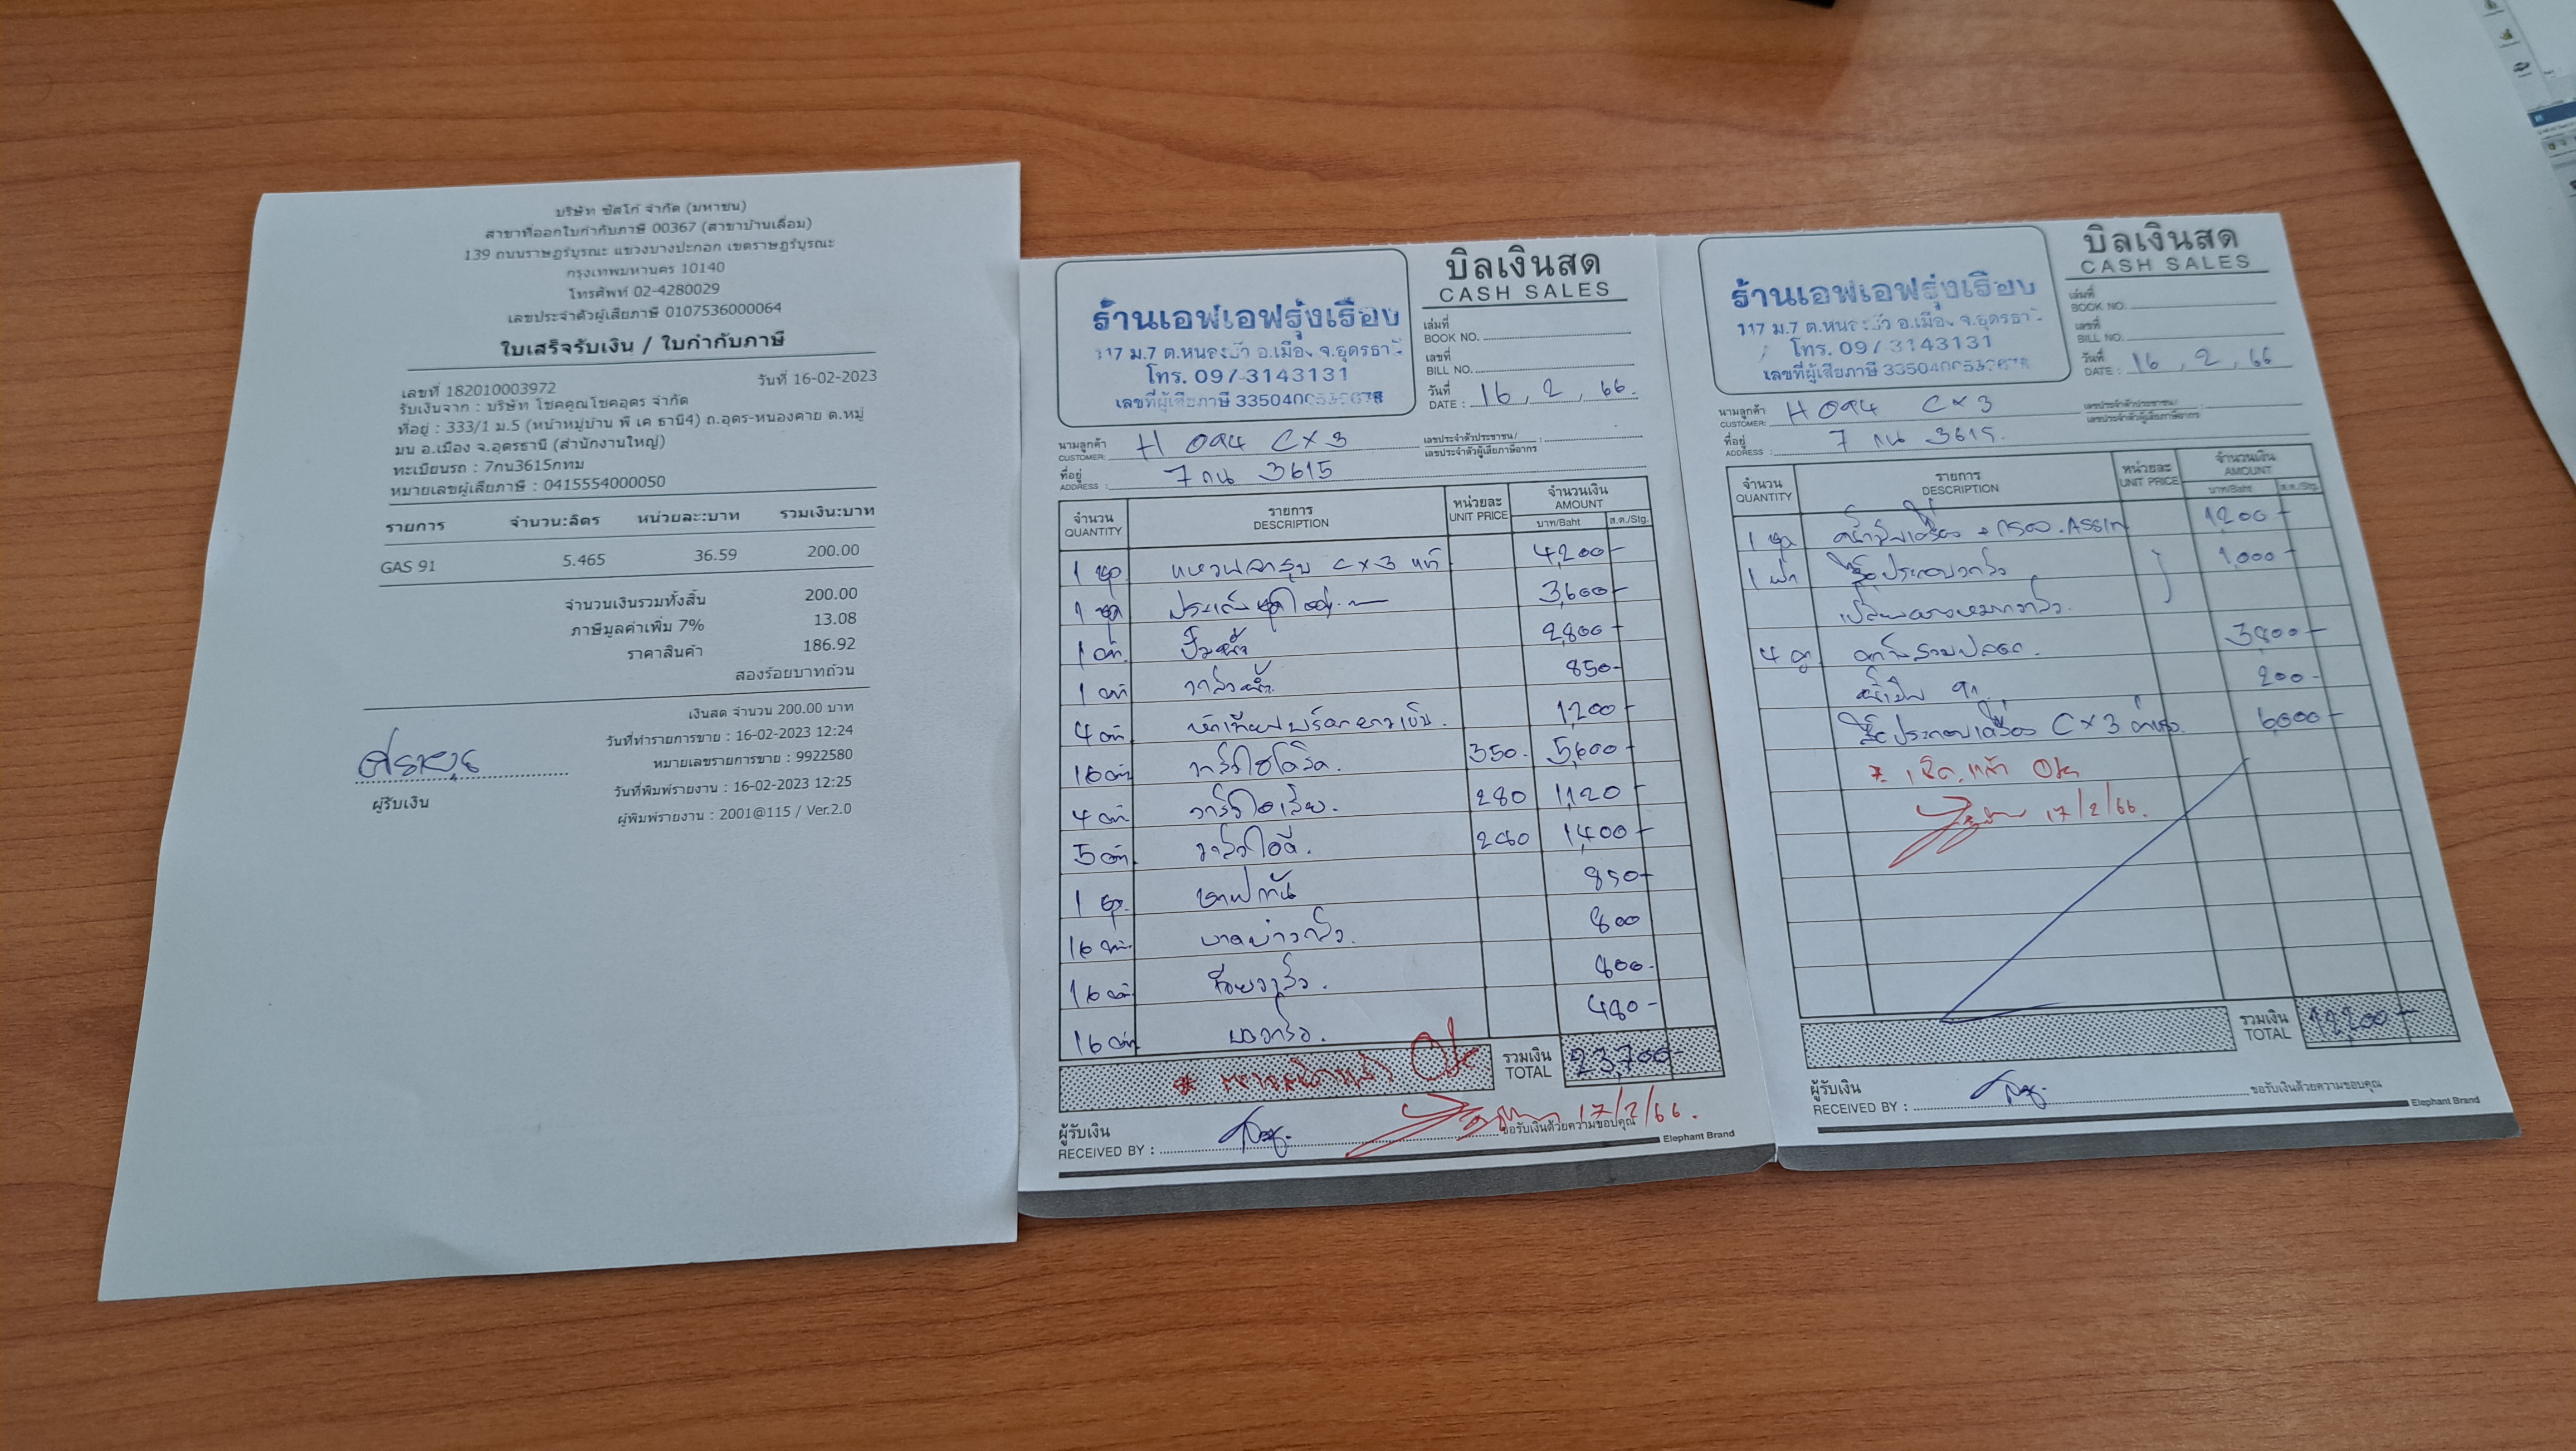 บริษัท ซัสโก้ จำกัด (มหาชน)
สาขาที่ออกใบกำกับภาษี 00367 (สาขาบ้านเลื่อม)
139 ถนนราษฎร์บูรณะ แขวงบางปะกอก เขตราษฎร์บูรณะ
กรุงเทพมหานคร 10140
โทรศัพท์ 02-4280029
เลขประจำตัวผู้เสียภาษี 0107536000064
ใบเสร็จรับเงิน / ใบกำกับภาษี
เลขที่ 182010003972 วันที่ 16-02-2023
รับเงินจาก : บริษัท โชคคูณโชคอุดร จำกัด
ที่อยู่ : 333/1 ม.5 (หน้าหมู่บ้าน พี เค ธานี4) ถ.อุดร-หนองคาย ต.หมู
มน อ.เมือง จ.อุดรธานี (สำนักงานใหญ่)
ทะเบียนรถ : 7กน3615กทม
หมายเลขผู้เสียภาษี : 0415554000050
รายการ จำนวน:ลิตร หน่วยละ:บาท รวมเงิน:บาท
GAS 91 5.465 36.59 200.00
จำนวนเงินรวมทั้งสิ้น 200.00
ภาษีมูลค่าเพิ่ม 7% 13.08
ราคาสินค้า 186.92
สองร้อยบาทถ้วน
เงินสด จำนวน 200.00 บาท
วันที่ทำรายการขาย : 16-02-2023 12:24
หมายเลขรายการขาย : 9922580
วันที่พิมพ์รายงาน : 16-02-2023 12:25
ผู้พิมพ์รายงาน : 2001@115 / Ver.2.0
ผู้รับเงิน
บิลเงินสด
CASH SALES
ร้านเอฟเอฟรุ่งเรือง
117 ม.7 ต.หนองบัว อ.เมือง จ.อุดรธานี
โทร. 097-3143131
เลขที่ผู้เสียภาษี
เล่มที่
BOOK NO.
เลขที่
BILL NO.
วันที่
DATE : 16, 2, 66.
นามลูกค้า
CUSTOMER: H 094 CX3
เลขประจำตัวประชาชน/
เลขประจำตัวผู้เสียภาษีอากร
ที่อยู่
ADDRESS : 7 กน 3615
จำนวน รายการ หน่วยละ จำนวนเงิน
QUANTITY DESCRIPTION UNIT PRICE AMOUNT
บาท/Baht ส.ต./Stg.
1 ชุด แหวนลูกสูบ CX3 แท้ 4,200-
1 ชุด ประเก็นชุดใหญ่ 3,600-
1 ตัว ปั๊มน้ำ 2,800-
1 ตัว วาล์วน้ำ 850-
4 ตัว 1,200-
16 ตัว วาล์วไฮโดริค. 350. 5,600-
4 ตัว วาล์วไอเสีย. 280 1,120-
5 ตัว วาล์วไอดี. 280 1,400-
1 ชุด 850-
16 ตัว บ่าวาล์ว. 800
16 ตัว วาล์ว. 800-
16 ตัว วาล์ว. 480-
OK
รวมเงิน
TOTAL 23,700-
17/2/66.
ผู้รับเงิน
RECEIVED BY :
ขอรับเงินด้วยความขอบคุณ
Elephant Brand
บิลเงินสด
CASH SALES
ร้านเอฟเอฟรุ่งเรือง
117 ม.7 ต.หนองบัว อ.เมือง จ.อุดรธานี
โทร. 097-3143131
เลขที่ผู้เสียภาษี
เล่มที่
BOOK NO.
เลขที่
BILL NO.
วันที่
DATE : 16, 2, 66
นามลูกค้า
CUSTOMER: H 094 CX3
เลขประจำตัวประชาชน/
เลขประจำตัวผู้เสียภาษีอากร
ที่อยู่
ADDRESS : 7 กน 3615.
จำนวน รายการ หน่วยละ จำนวนเงิน
QUANTITY DESCRIPTION UNIT PRICE AMOUNT
บาท/Baht ส.ต./Stg.
1 ชุด น้ำมันเครื่อง + กรอง. 1,200-
1 ฝา ประกอบวาล์ว 1,000-
4 สูบ 3,800-
200-
ประกอบเครื่อง CX3 6,000-
* เช็คแล้ว OK
17/2/66.
รวมเงิน
TOTAL 12,200-
ผู้รับเงิน
RECEIVED BY :
ขอรับเงินด้วยความขอบคุณ
Elephant Brand